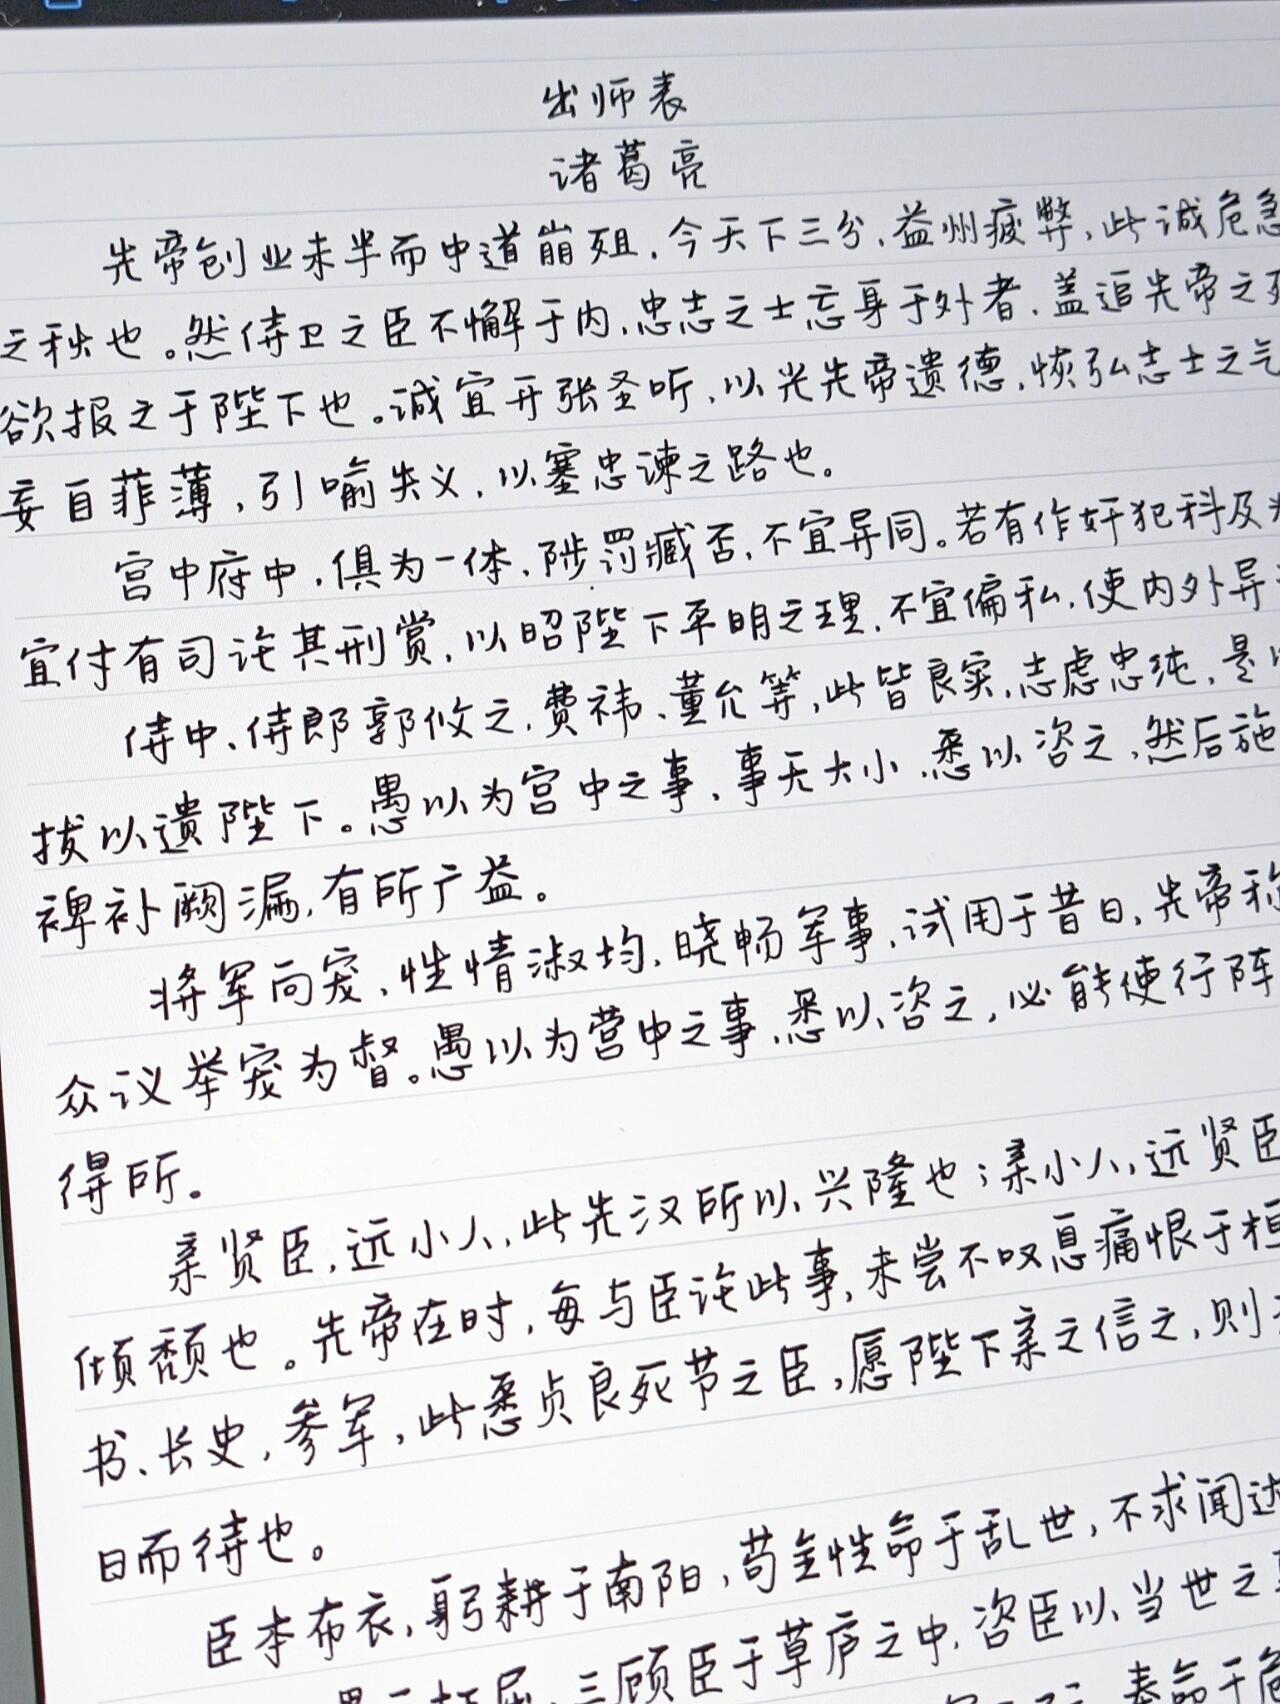 出师表
诸葛亮
先帝创业未半而中道崩殂,今天下三分,益州疲弊,此诚危急
之秋也。然侍卫之臣不懈于内,忠志之士忘身于外者,盖追先帝之
欲报之于陛下也。诚宜开张圣听,以光先帝遗德,恢弘志士之气
妄自菲薄,引喻失义,以塞忠谏之路也。
宫中府中,俱为一体,陟罚臧否,不宜异同。若有作奸犯科及
宜付有司论其刑赏,以昭陛下平明之理,不宜偏私,使内外异
侍中、侍郎郭攸之,费祎、董允等,此皆良实,志虑忠纯,是以
拔以遗陛下。愚以为宫中之事,事无大小,悉以咨之,然后施
裨补阙漏,有所广益。
将军向宠,性情淑均,晓畅军事,试用于昔日,先帝称
众议举宠为督。愚以为营中之事,悉以咨之,必能使行阵
得所。
亲贤臣,远小人,此先汉所以兴隆也;亲小人,远贤臣
倾颓也。先帝在时,每与臣论此事,未尝不叹息痛恨于桓
书、长史,参军,此悉贞良死节之臣,愿陛下亲之信之,则
日而待也。
臣本布衣,躬耕于南阳,苟全性命于乱世,不求闻达
三顾臣于草庐之中,咨臣以当世之
奉命于危